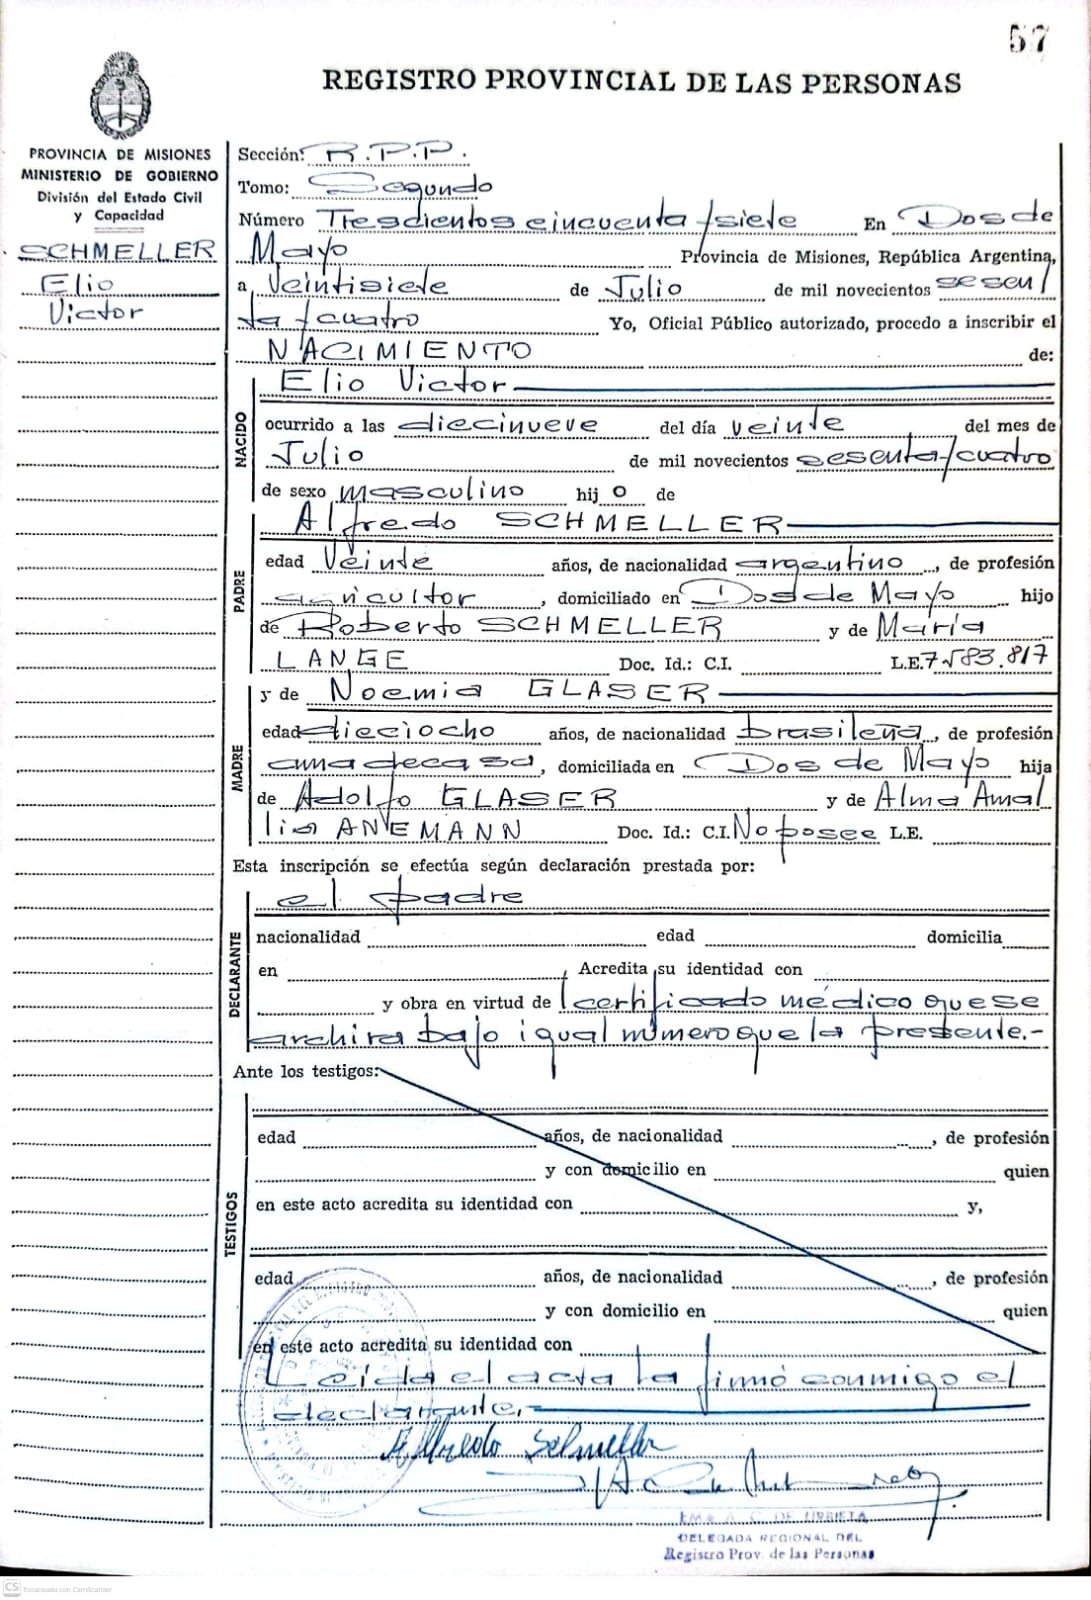 57
REGISTRO PROVINCIAL DE LAS PERSONAS
PROVINCIA DE MISIONES
MINISTERIO DE GOBIERNO
División del Estado Civil
y Capacidad
SCHMELLER
Elio
Victor
Sección: R.P.P.
Tomo: Segundo
Número Trescientos cincuenta/siete En Dos de
Mayo Provincia de Misiones, República Argentina,
a Veintisiete de Julio de mil novecientos sesen/
ta/cuatro Yo, Oficial Público autorizado, procedo a inscribir el
NACIMIENTO de:
Elio Victor
NACIDO
ocurrido a las diecinueve del día veinte del mes de
Julio de mil novecientos sesenta/cuatro
de sexo masculino hijo de
Alfredo SCHMELLER
PADRE
edad Veinte años, de nacionalidad argentino, de profesión
agricultor, domiciliado en Dos de Mayo hijo
de Roberto SCHMELLER y de María
LANGE Doc. Id.: C.I. L.E. 7.583.817
y de Noemia GLASER
MADRE
edad dieciocho años, de nacionalidad brasileña, de profesión
ama de casa, domiciliada en Dos de Mayo hija
de Adolfo GLASER y de Alma Amal
lia ANEMANN Doc. Id.: C.I. No posee L.E.
Esta inscripción se efectúa según declaración prestada por:
el padre
DECLARANTE
nacionalidad edad domicilia
en Acredita su identidad con
y obra en virtud de certificado médico que se
archiva bajo igual número que la presente.-
Ante los testigos:
TESTIGOS
edad años, de nacionalidad , de profesión
y con domicilio en quien
en este acto acredita su identidad con y,
edad años, de nacionalidad , de profesión
y con domicilio en quien
en este acto acredita su identidad con
Leida el acta la firmó conmigo el
declarante.
Alfredo Schmeller
EMA A. C. DE URRIETA
DELEGADA REGIONAL DEL
Registro Prov. de las Personas
CS Escaneado con CamScanner